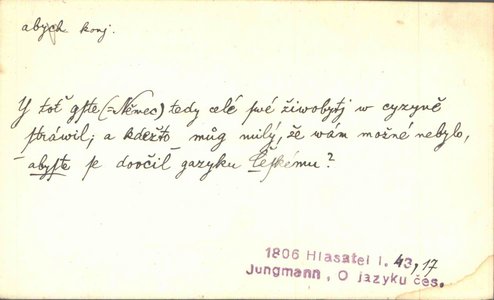 abych konj.
Y toť gste (= Němec) tedy celé swé žiwobytj w cyzyně
stráwil; a kdežto můg milý, že wám možné nebylo,
abyste se doočil gazyku Českému?
1806 Hlasatel I. 43, 17
Jungmann, O jazyku čes.